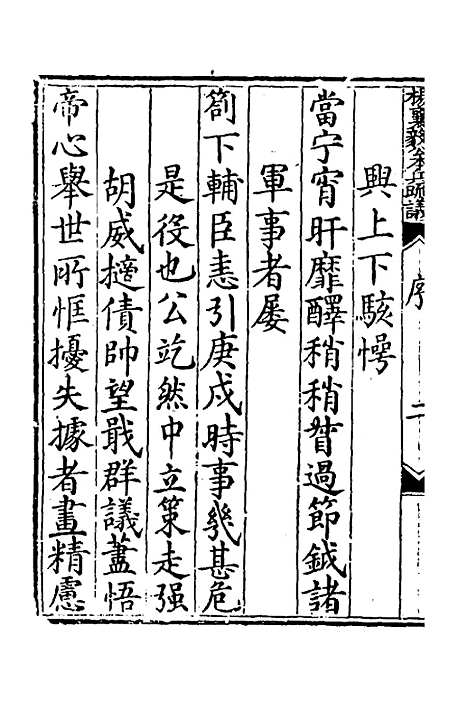 楊襄毅本兵疏議
序
二
輿上下駭愕
當宁宵旰靡醳稍稍督過節鉞諸
軍事者屢
劄下輔臣恚引庚戌時事幾甚危
是役也公屹然中立策走强
胡威擿債帥望戢群議藎悟
帝心舉世所恇擾失據者畫精慮